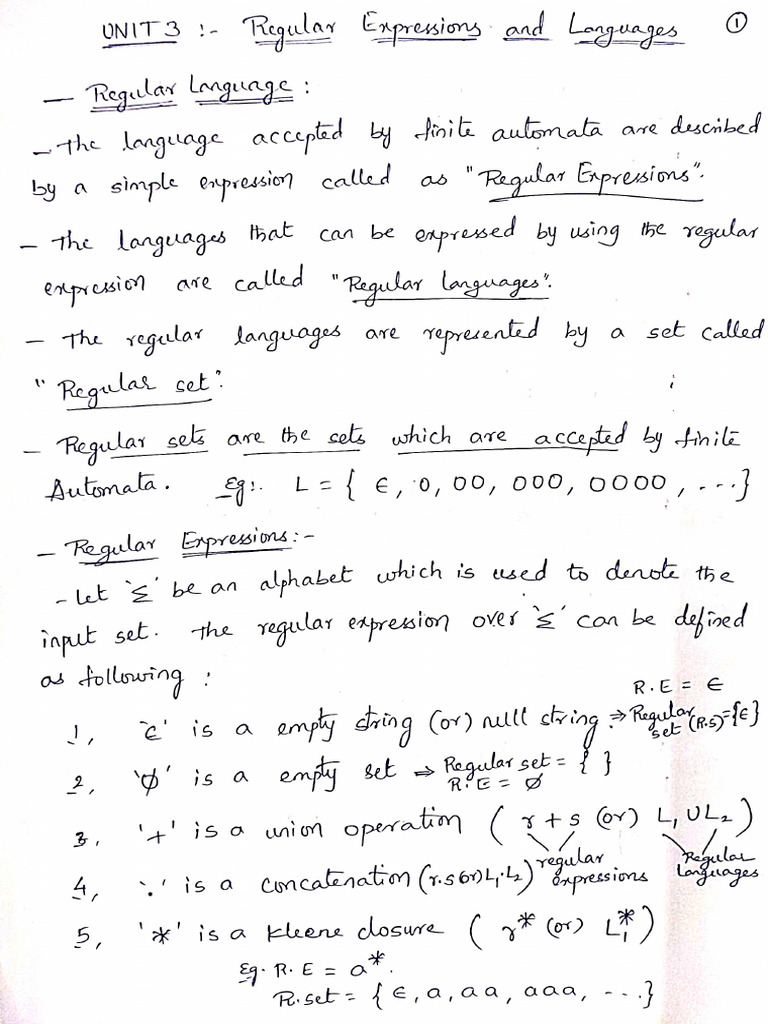 UNIT 3 :- Regular Expressions and Languages ①
— Regular Language :
- The language accepted by finite automata are described
by a simple expression called as "Regular Expressions".
- The languages that can be expressed by using the regular
expression are called "Regular languages".
- The regular languages are represented by a set called
"Regular set".
- Regular sets are the sets which are accepted by finite
Automata. Eg:. L = { ϵ, 0, 00, 000, 0000, ...}
- Regular Expressions:-
- Let 'Σ' be an alphabet which is used to denote the
input set. The regular expression over 'Σ' can be defined
as following :
R.E = ϵ
1, 'ϵ' is a empty string (or) null string. ⇒ Regular set (R.S) = {ϵ}
2, 'Ø' is a empty set ⇒ Regular set = { }
R.E = Ø
3, '+' is a union operation ( r + s (or) L₁ U L₂ )
regular expressions Regular Languages
4, '.' is a concatenation (r.s (or) L₁.L₂)
5, '*' is a kleene closure ( r* (or) L₁* )
Eg. R.E = a*.
R.set = { ϵ, a, aa, aaa, ...}